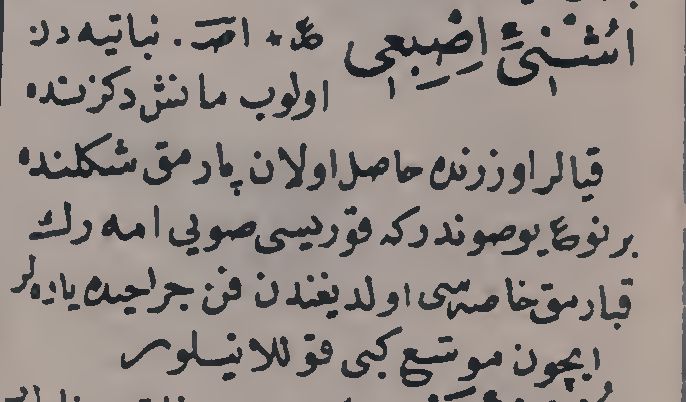 اُشْنِیُّ اِصْبِعِی ع٠ اص. نباتیه دن
اولوب مانش دكزنده
قیالر اوزرنده حاصل اولان پارمق شكلنده
بر نوع یوصوندركه قوریسی صویی امه رك
قبارمق خاصه سی اولدیغندن فن جراحیده یاره لر
ایچون موسّع كبی قوللانیلور